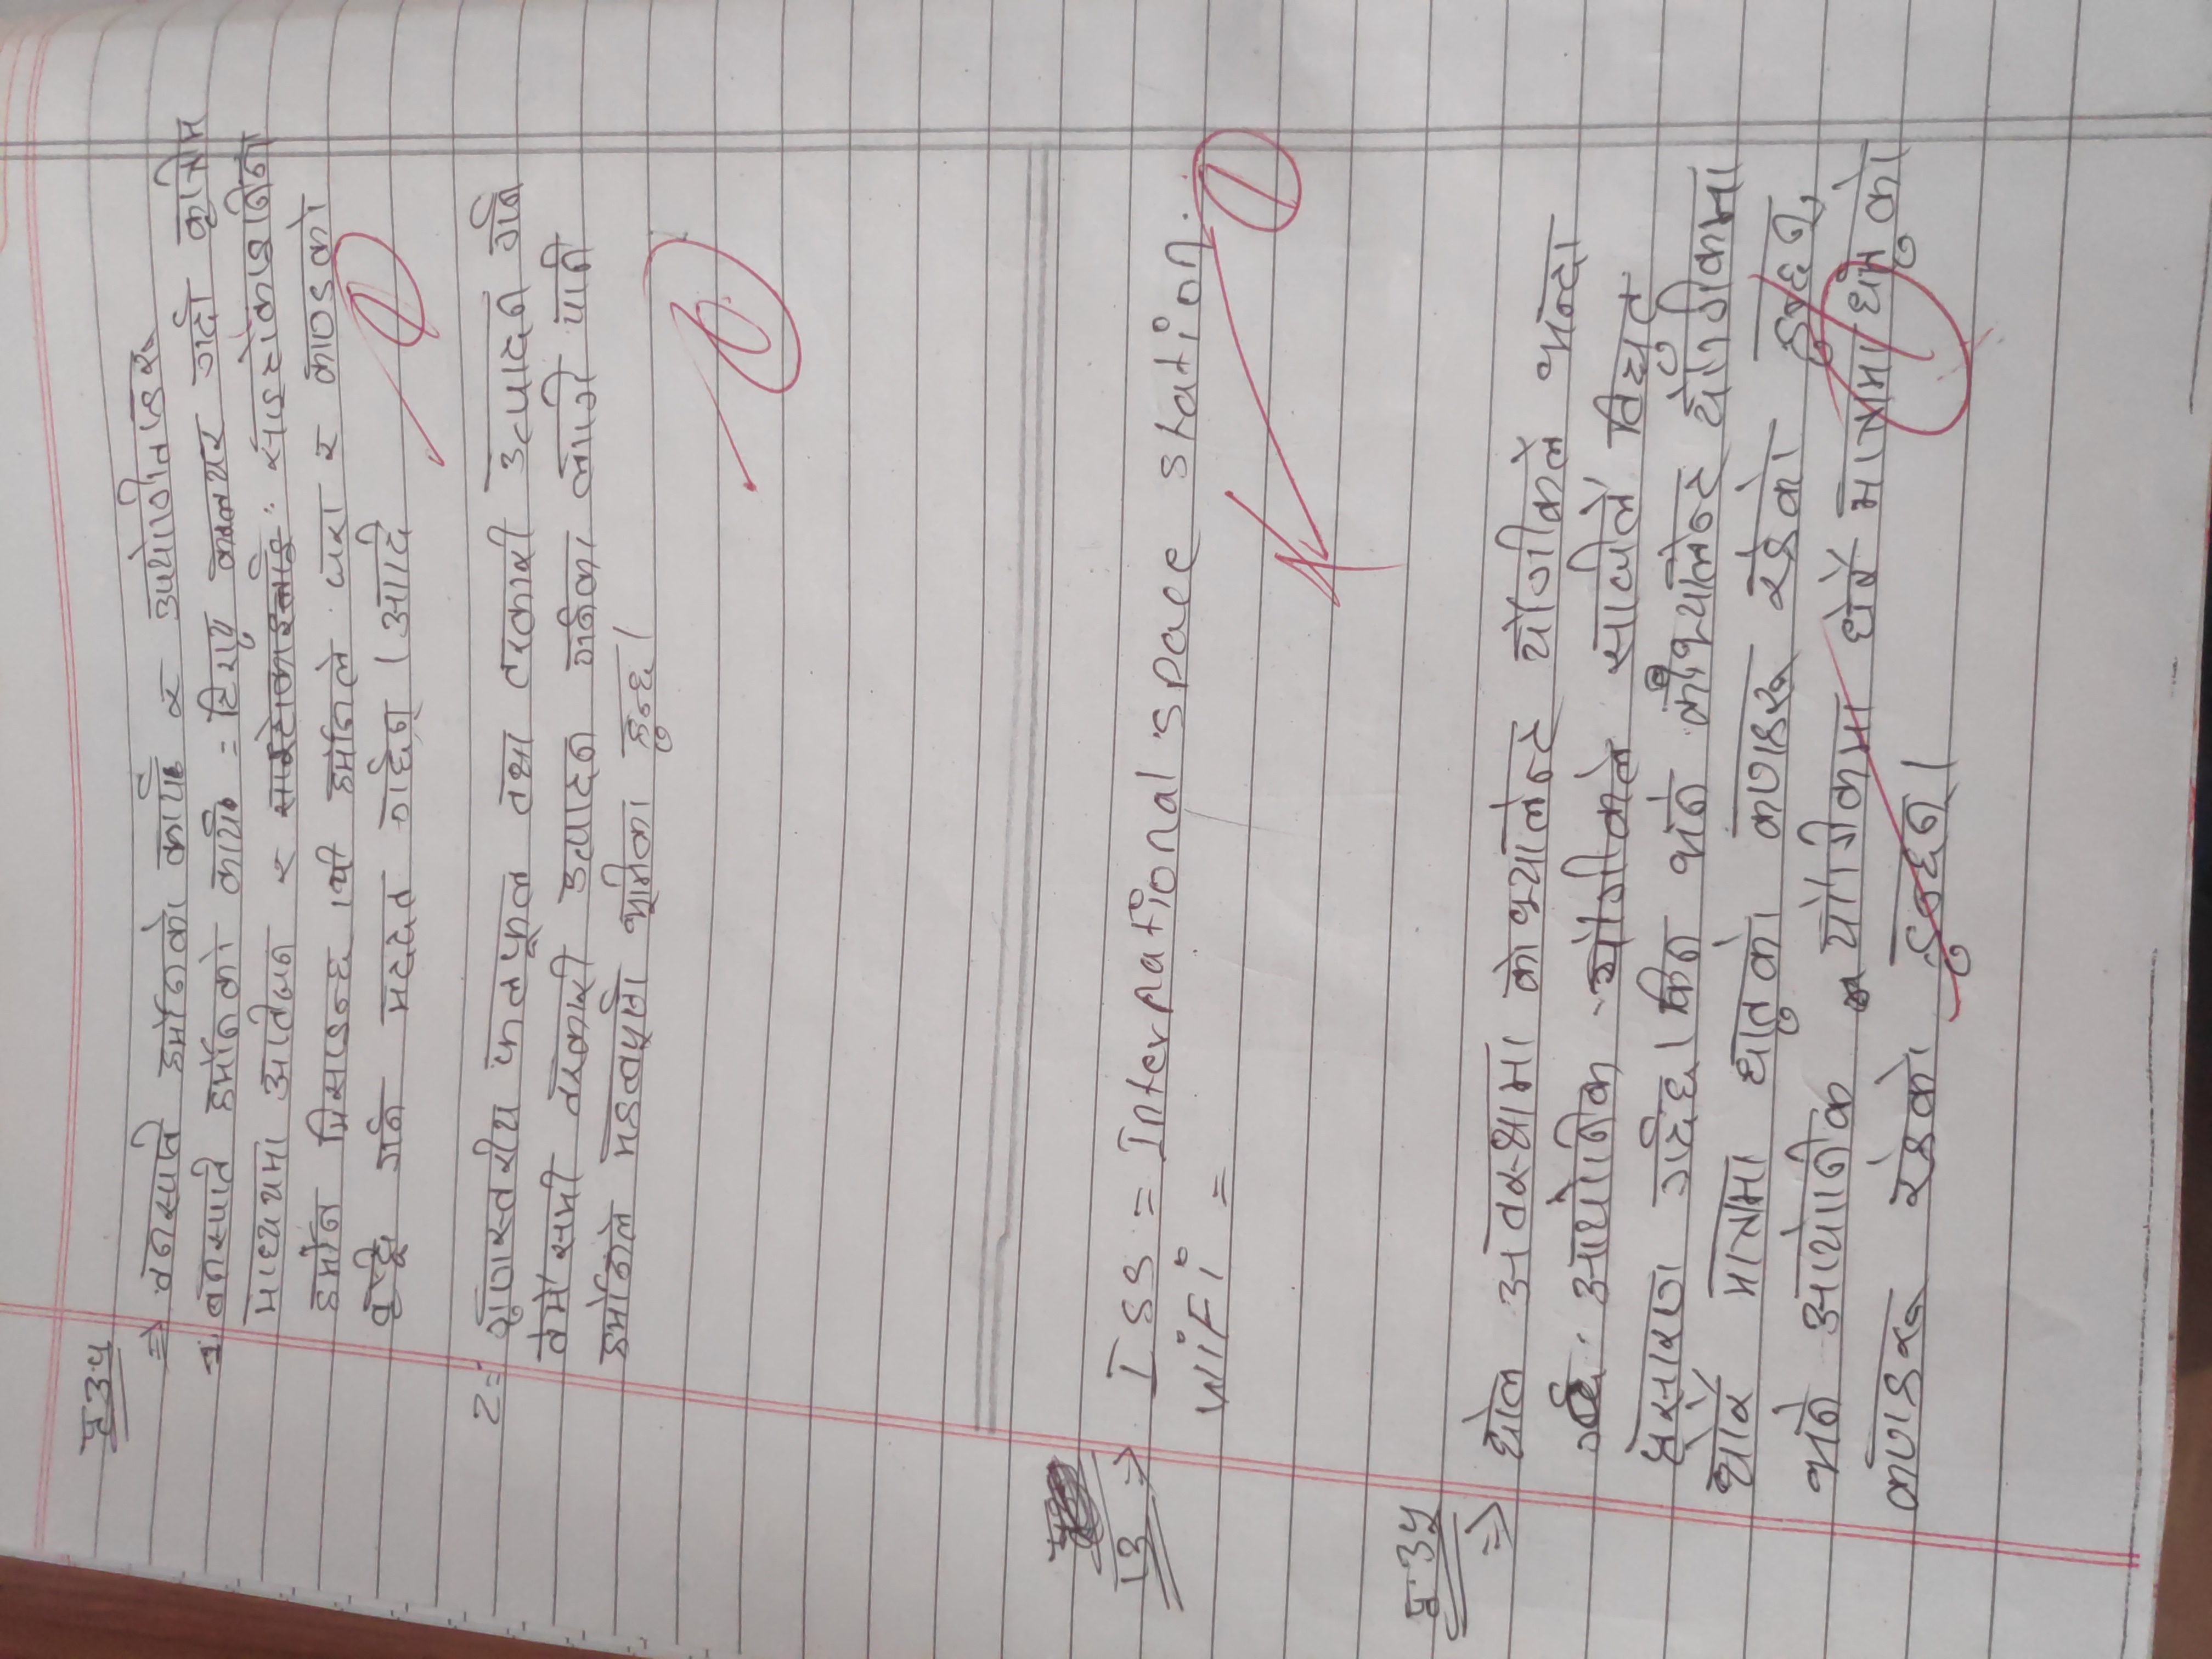 प्र ३५
⇒ वनस्पति हर्मोनको कार्य र उपयोगीताहरू
1= वनस्पति हर्मोनको कार्य = टिस्यू कल्चर गर्दा कृत्रीम
माध्ययमा अक्जिन र साइटोकाइनिन
हर्मोन मिसाइन्छ । यी हर्मोनले जरा र काण्डको
वृद्धि गर्न मददत गर्छन् । आदि
①
2= गुणस्तरीय फलफूल तथा तरकारी उत्पादन गर्न
वेमौसमी तरकारी उत्पादन गर्नका लागि पनि
हर्मोनले महत्वपूर्ण भूमिका हुन्छ ।
13 ⇒ ISS = International space station.
WiFi =
①
प्र. ३५
⇒ घोल अवस्थामा कोभ्यालेन्ट यौगीकले भन्दा
आयोनिक यौगीकले सजीलै विद्युत
प्रसारण गर्दछ । किन भने कोभ्यालेन्ट यौगिकमा
थोरै मात्रामा धातुको कणहरू रहेको हुन्छन्,
भने आयोनीक यौगिकमा धेरै मात्रामा धातुको
कणहरू रहेको हुन्छन् ।
①